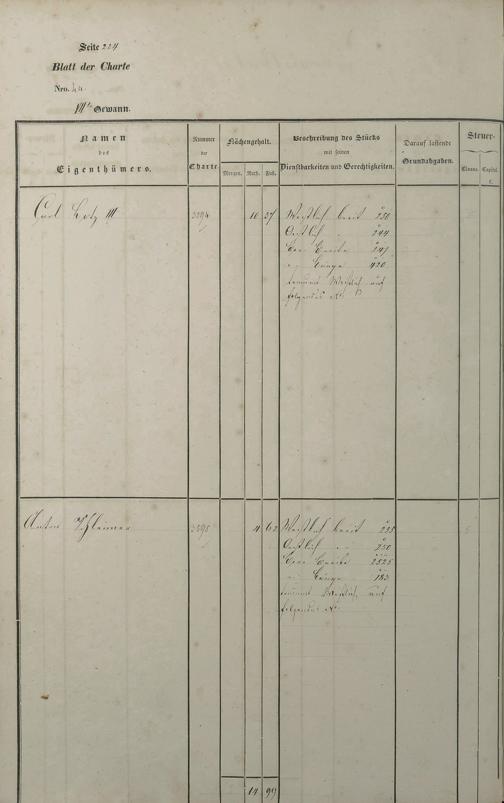 Seite 224
Blatt der Charte
Nro. 44
VIIte Gewann.
Namen
des
Eigenthümers.
Nummer
der
Charte
Flächengehalt.
Morgen. Ruth. Fuß.
Beschreibung des Stücks
mit seinen
Dienstbarkeiten und Gerechtigkeiten.
Darauf lastende
Grundabgaben.
Steuer-
Classe. Capital.
Carl III
3394
10 37
Westlich breit 238
Oestlich 244
Breite 241
Länge 420
Westlich auf
folgendes Nr.
Anton
3395
4 62
Westlich breit 255
Oestlich 250
Breite 2525
Länge 183
Westlich auf
folgendes Nr.
14 99